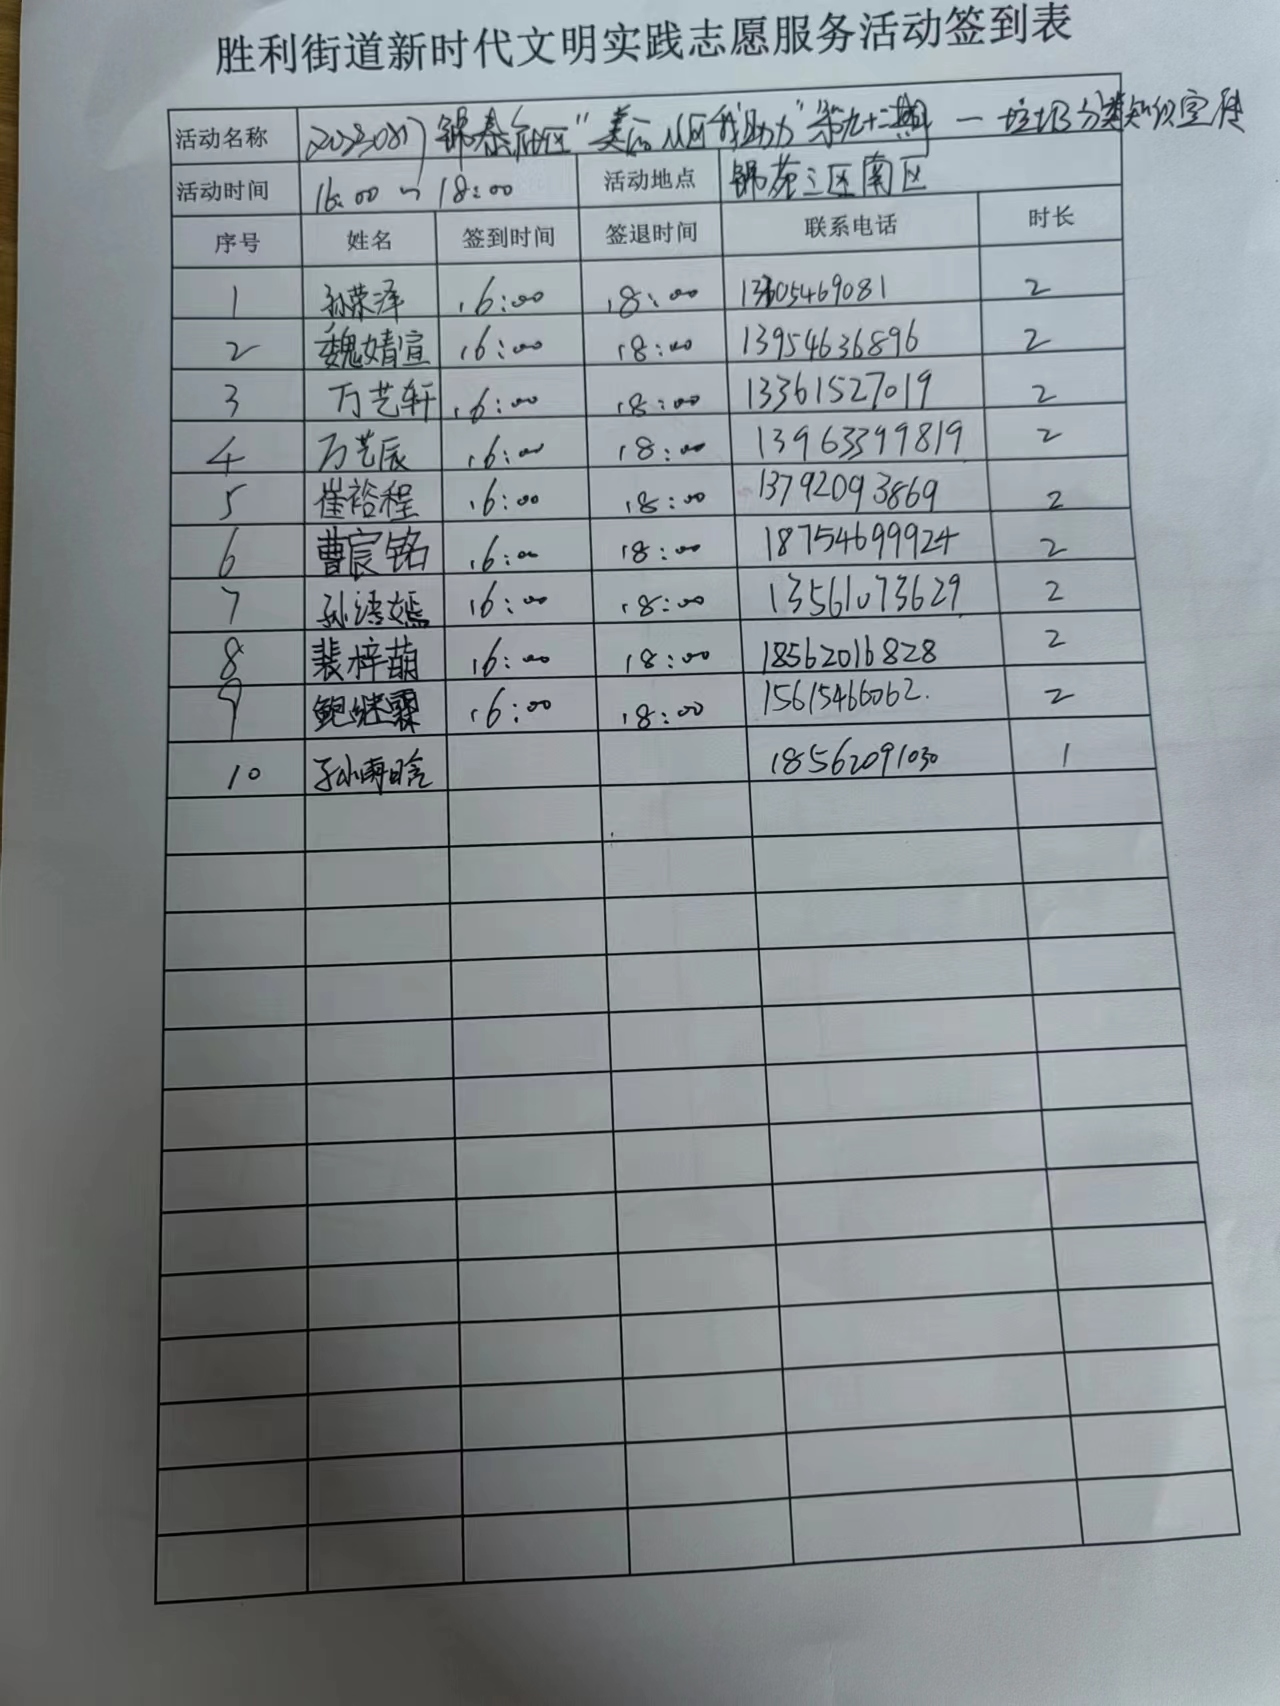 胜利街道新时代文明实践志愿服务活动签到表
活动名称 20230817 锦泰社区“美 我助力”第九十二期 — 垃圾分类知识宣传
活动时间 16:00~18:00 活动地点 锦苑三区南区
序号 姓名 签到时间 签退时间 联系电话 时长
1 孙荣泽 16:00 18:00 13605469081 2
2 魏婧宣 16:00 18:00 13954636896 2
3 万艺轩 16:00 18:00 13361527019 2
4 万艺辰 16:00 18:00 13963399819 2
5 崔裕程 16:00 18:00 13792093869 2
6 曹宸铭 16:00 18:00 18754699924 2
7 孙涛嫣 16:00 18:00 13561073629 2
8 裴梓萌 16:00 18:00 18562016828 2
9 鲍继霖 16:00 18:00 15615466062. 2
10 孙雨晗 18562091030 1